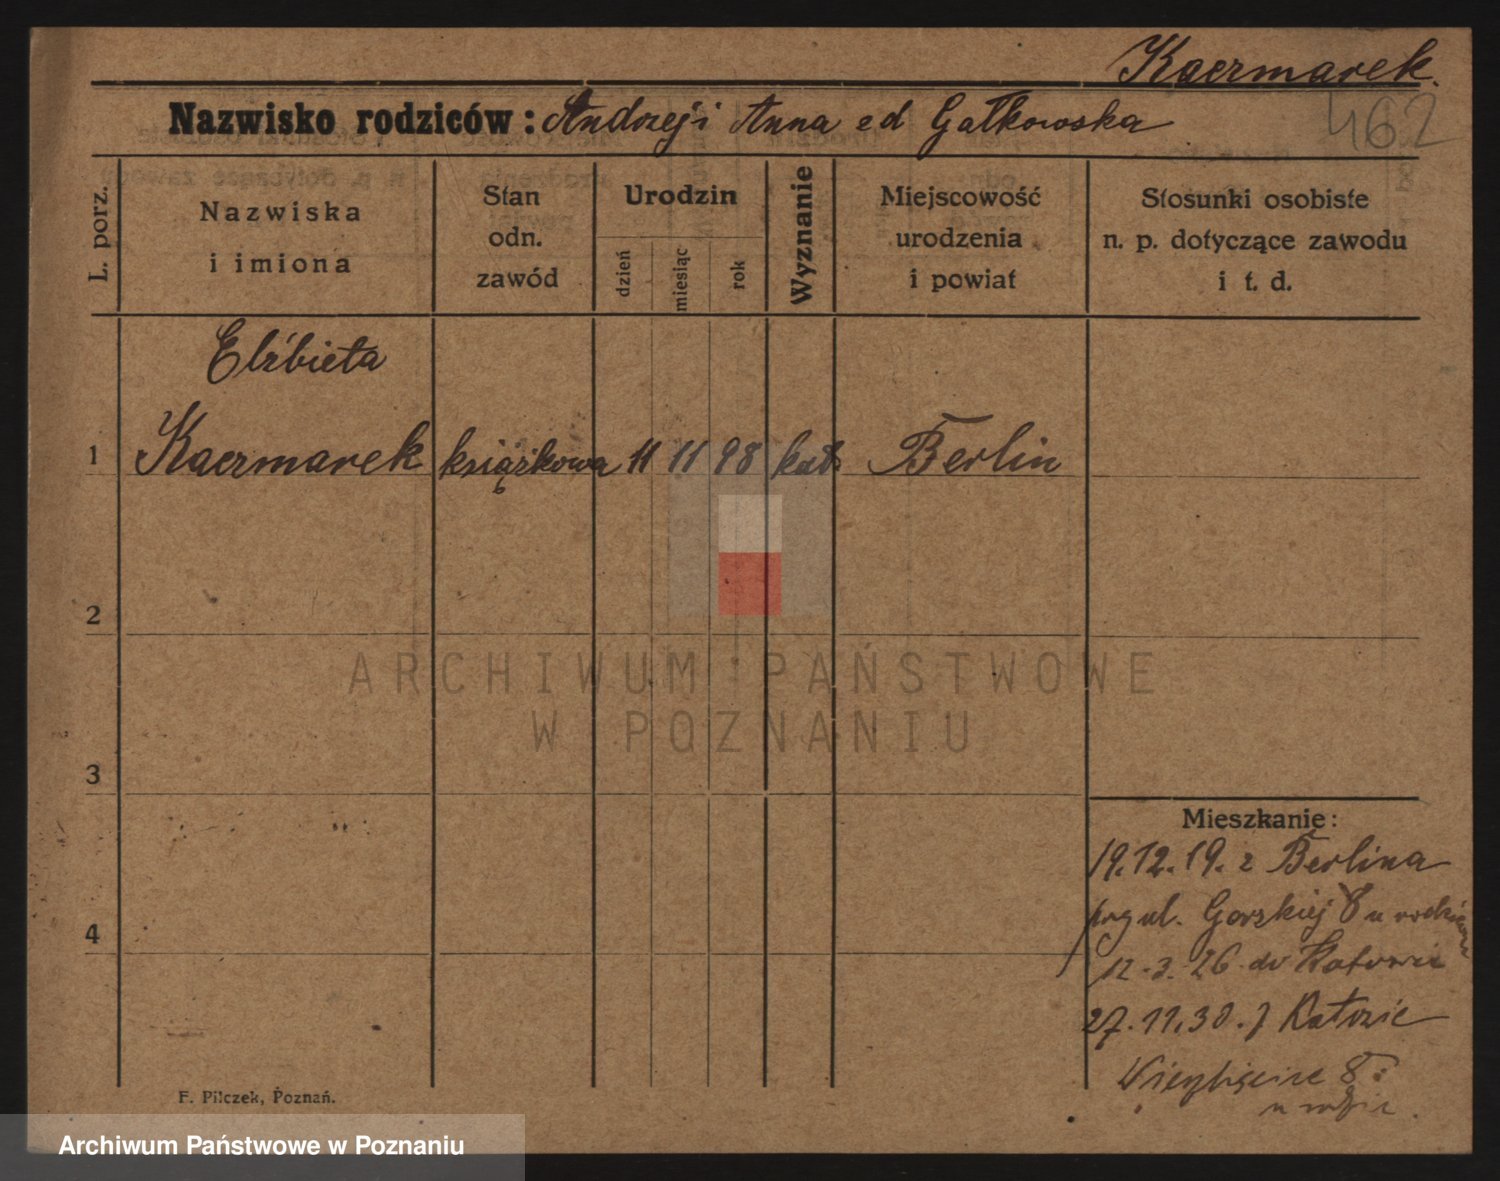 Kaczmarek.
462
Nazwisko rodziców: Andrzej i Anna zd Gałkowska
L. porz.
Nazwiska
i imiona
Stan
odn.
zawód
Urodzin
dzień
miesiąc
rok
Wyznanie
Miejscowość
urodzenia
i powiat
Stosunki osobiste
n. p. dotyczące zawodu
i t. d.
Elżbieta
1 Kaczmarek książkowa 11 11 98 kat. Berlin
2
3
4
Mieszkanie:
19.12.19. z Berlina
ul. Gorskiej 8 u
12.3.26 do Katowic
27.11.30. z Katowic
8
F. Pilczek, Poznań.
ARCHIWUM PAŃSTWOWE
W POZNANIU
Archiwum Państwowe w Poznaniu